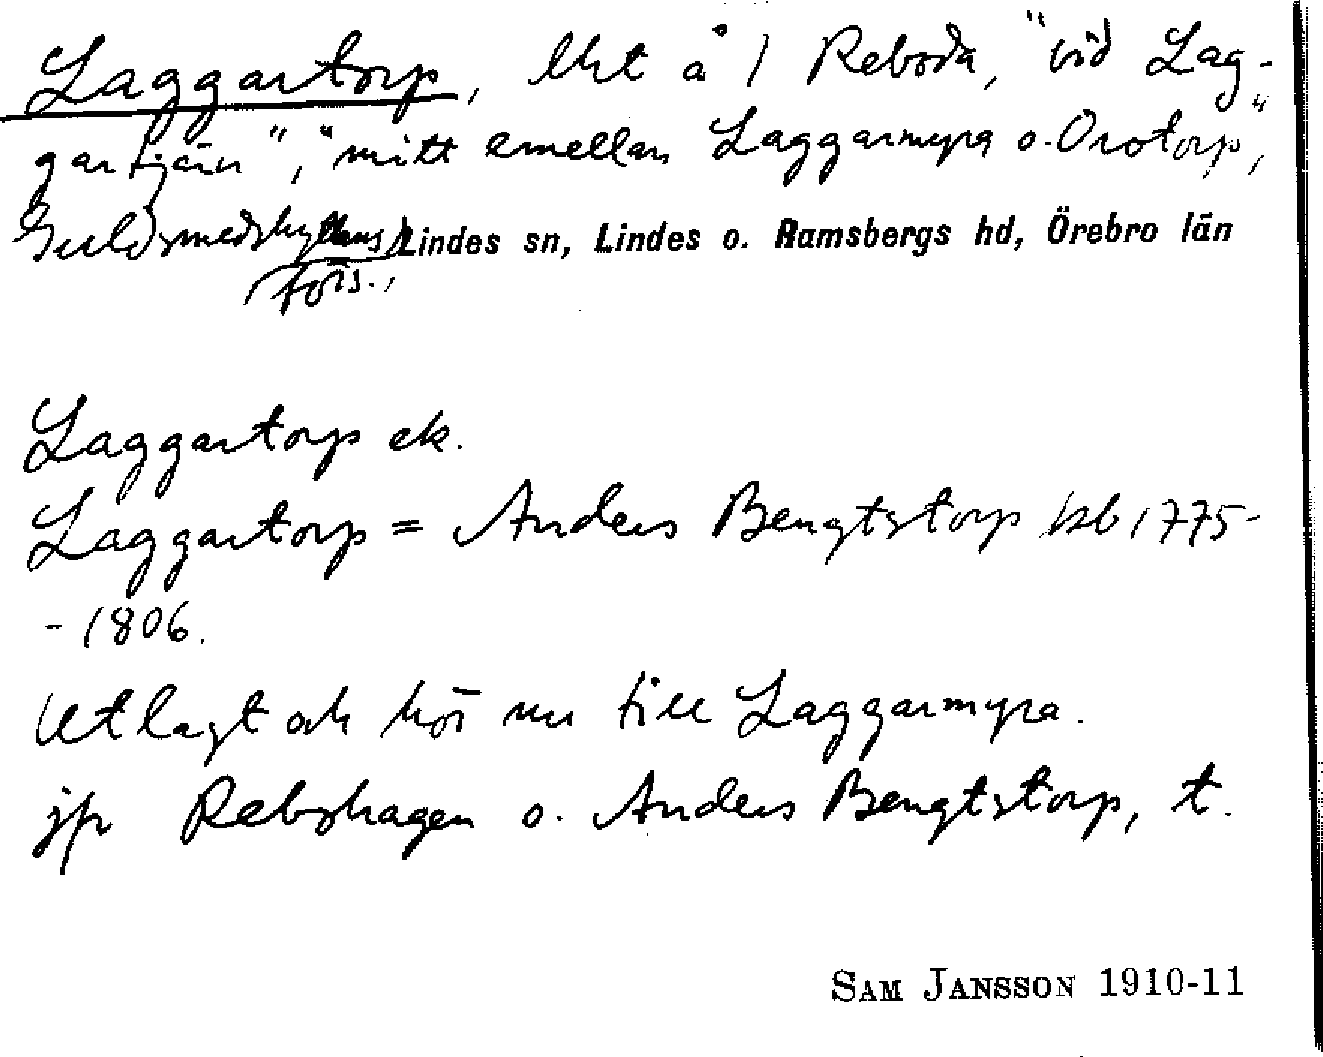 Laggartorp, lht å 1 Reboda, "vid Lag-
gartjärn", "mitt emellan Laggarmyra o. Orotorp",
Guldsmedshyttans Lindes sn, Lindes o. Ramsbergs hd, Örebro län
förs.,
Laggartorp ek.
Laggartorp = Anders Bengtstorp kb 1775-
-1806.
Utlagt och hör nu till Laggarmyra.
jfr Rebohagen o. Anders Bengtstorp, t.
SAM JANSSON 1910-11